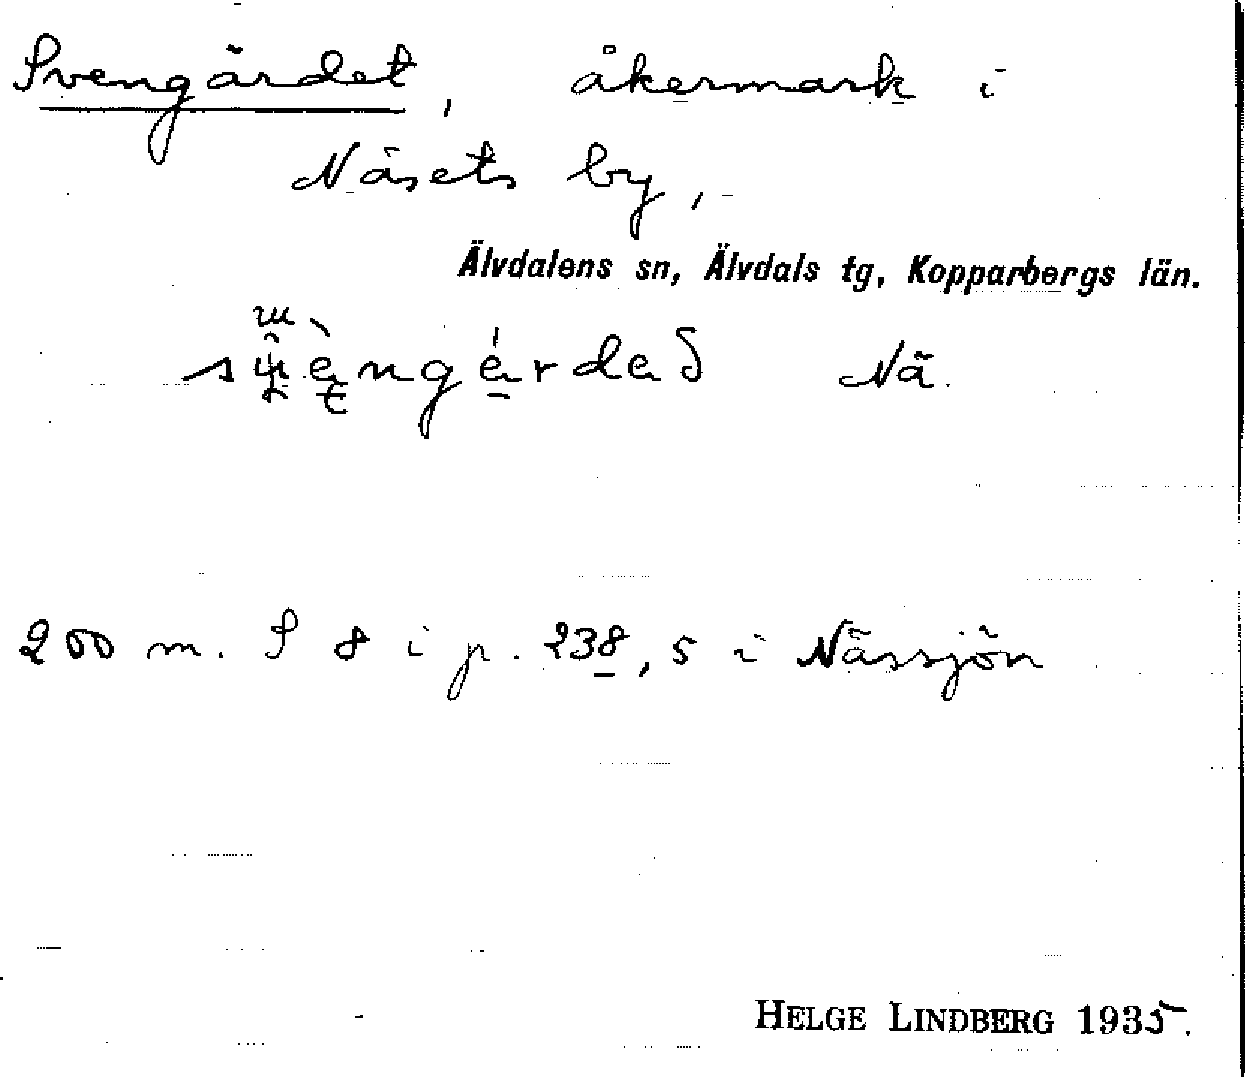 Svengärdet, åkermark i
Näsets by,
Älvdalens sn, Älvdals tg, Kopparbergs län.
Nä.
200 m. S 8 i p. 238,5 i Nässjön
HELGE LINDBERG 1935.